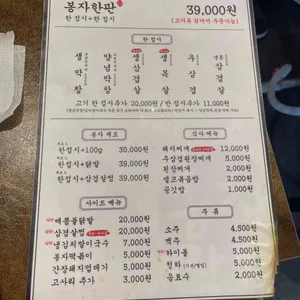 봉자한판
한 접시+한 접시
39,000원
한 접시
생막창
양념막창
생삼겹살
생목살
우삼겹
냉동삼겹
고기 한 접시추가 20,000원 / 반 접시추가 11,000원
봉자 세트
한접시+100g 30,000원
한접시+닭발 39,000원
한접시+삼겹살찜 39,000원
식사 메뉴
돼지찌개 12,000원
우삼겹된장찌개 5,000원
된장찌개 2,000원
셀프볶음밥 2,000원
공깃밥 1,000원
사이트 메뉴
매콤불닭발 20,000원
삼겹살찜 20,000원
냉김치말이국수 7,000원
봉자떡볶이 5,000원
간장돼지껍데기 5,000원
고사리 추가 3,000원
주 류
소주 4,500원
맥주 4,500원
하이볼 5,000원
청하 5,000원
음료수 2,000원